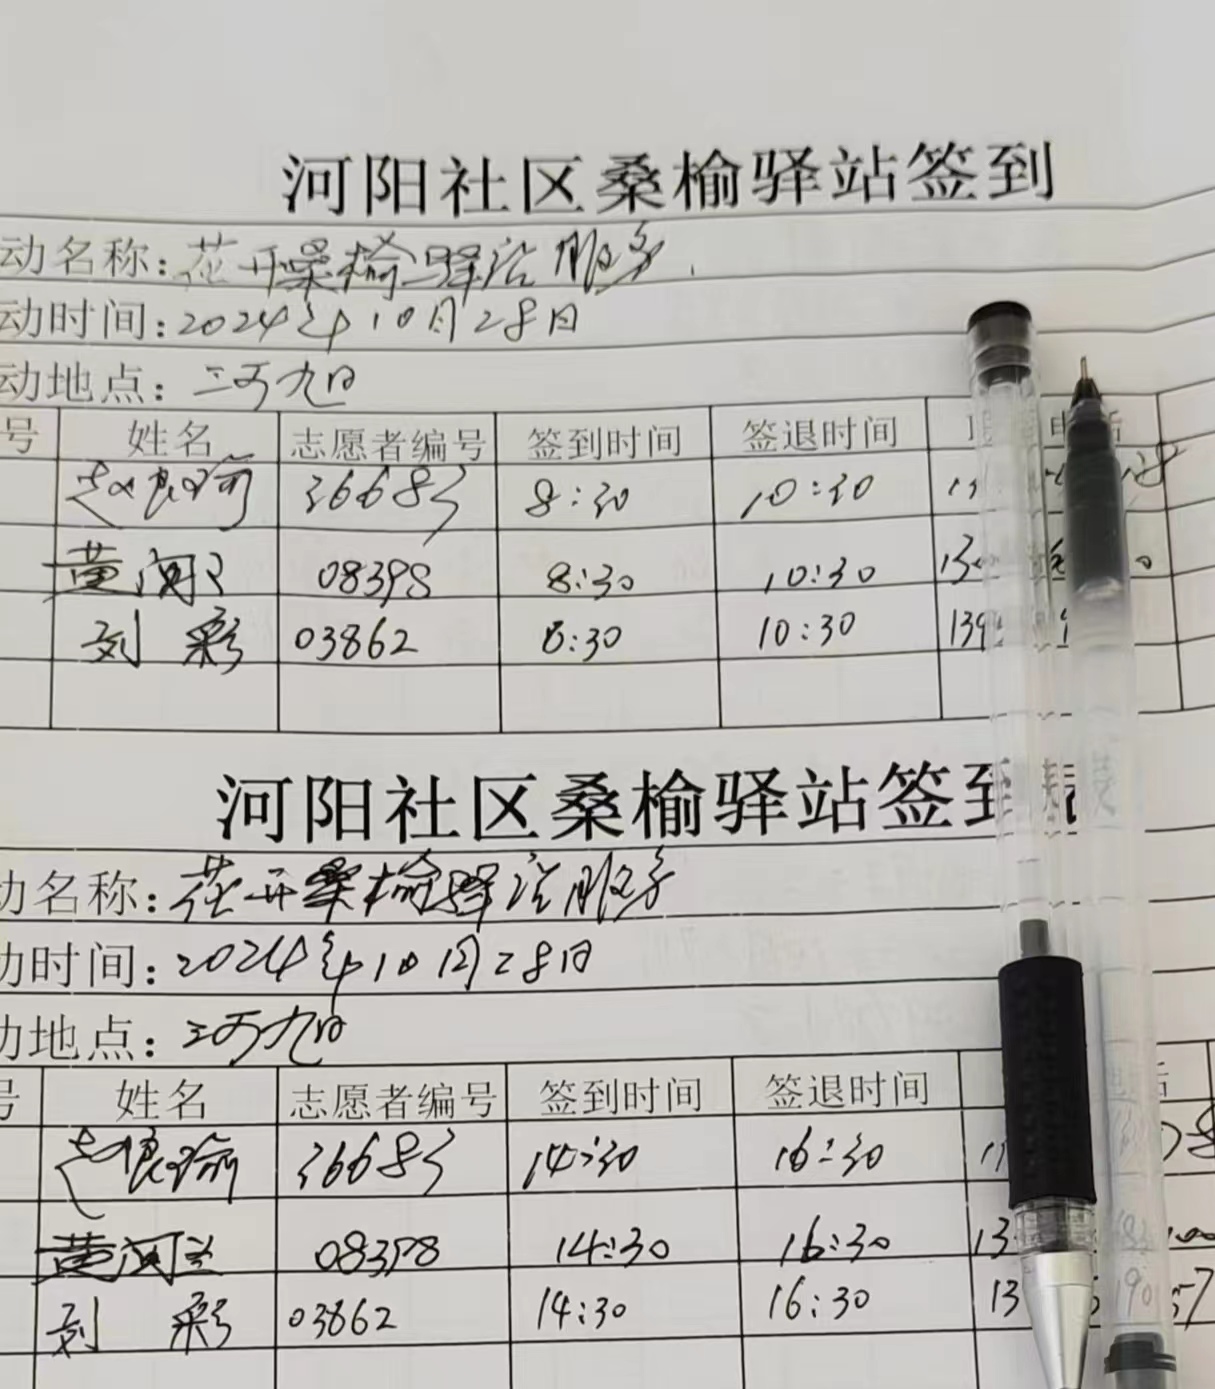 河阳社区桑榆驿站签到
动名称:花开桑榆驿站服务
动时间:2024年10月28日
动地点:三河九日
号 姓名 志愿者编号 签到时间 签退时间
赵良瑜 36683 8:30 10:30
黄 08398 8:30 10:30
刘彩 03862 8:30 10:30
河阳社区桑榆驿站签到表
动名称:花开桑榆驿站服务
动时间:2024年10月28日
动地点:三河九日
号 姓名 志愿者编号 签到时间 签退时间 电话
赵良瑜 36683 14:30 16:30
黄 08398 14:30 16:30
刘彩 03862 14:30 16:30